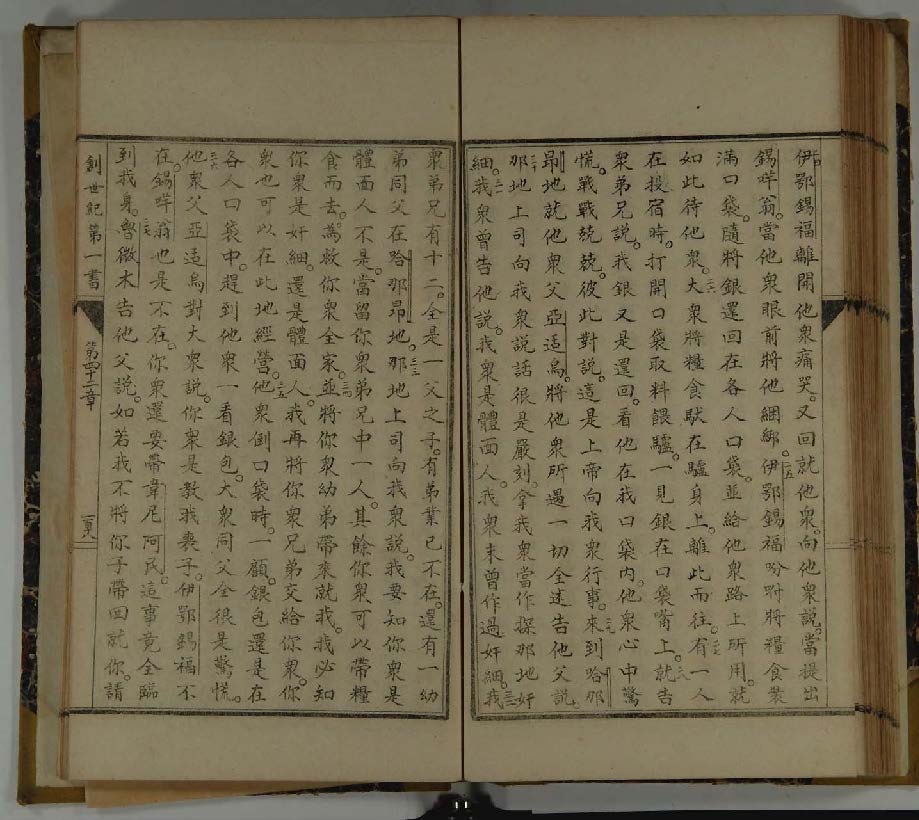 伊鄂錫福離開他衆痛哭。又回就他衆。向他衆說。當提出
錫咩翁。當他衆眼前將他綑綁。二五伊鄂錫福吩咐將糧食裝
滿口袋。隨將銀還回在各人口袋。並給他衆路上所用。就
如此待他衆。二六大衆將糧食馱在驢身上。離此而往。二七有一人
在投宿時。打開口袋取料餵驢。一見銀在口袋嘴上。二八就告
衆弟兄說。我銀又是還回。看他在我口袋內。他衆心中驚
慌。戰戰兢兢。彼此對說。這是上帝向我衆行事。二九來到哈那
昂地就他衆父亞适烏。將他衆所遇一切全述告他父說。
三十那地上司向我衆說話很是嚴刻。拿我衆當作探那地奸
細。三一我衆曾告他說。我衆是體面人。我衆未曾作過奸細。三二我
衆弟兄有十二。全是一父之子。有弟業已不在。還有一幼
弟同父在哈那昂地。三三那地上司向我衆說。我要知你衆是
體面人不是。當留你衆弟兄中一人。其餘你衆可以帶糧
食而去。為救你衆全家。三四並將你衆幼弟帶來就我。我必知
你衆是奸細。還是體面人。我再將你衆兄弟父給你衆。你
衆也可以在此地經營。三五他衆倒口袋時。一顧。銀包還是在
各人口袋中。趕到他衆一看銀包。大衆同父全很是驚慌。
三六他衆父亞适烏對大衆說。你衆是教我喪子。伊鄂錫福不
在。錫咩翁也是不在。你衆還要帶韋尼阿民。這事竟全臨
到我身。三七魯微木告他父說。如若我不將你子帶回就你。請
創世紀第一書
第四十二章